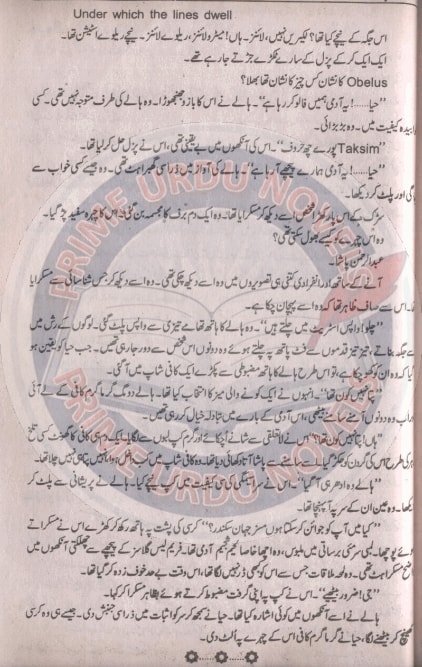 Under which the lines dwell
اس جگہ کے نیچے کیا تھا؟ لکیریں نہیں، لائنز۔ ہاں! میٹرو لائنز، ریلوے لائنز۔ نیچے ریلوے اسٹیشن تھا۔
ایک ایک کر کے پزل کے سارے ٹکڑے جڑتے جا رہے تھے۔
Obelus کا نشان کس چیز کا نشان تھا بھلا؟
”حیا......! یہ آدمی ہمیں فالو کر رہا ہے“۔ ہالے نے اس کا بازو جھنجھوڑا۔ وہ ہالے کی طرف متوجہ نہیں تھی۔ کسی
خوابیدہ کیفیت میں۔ وہ بڑبڑائی۔
”Taksim پورے چھ حروف“۔ اس کی آنکھوں میں بے یقینی تھی، اس نے پزل حل کر لیا تھا۔
”حیا......! یہ آدمی ہمارے پیچھے آ رہا ہے“۔ ہالے کی آواز میں ذرا سی گھبراہٹ تھی۔ وہ جیسے کسی خواب سے
گی اور پلٹ کر دیکھا۔
سڑک کے اس پار کھڑا شخص اسے دیکھ کر مسکرایا تھا۔ وہ ایک دم برف کا مجسمہ بن گئی۔ اس کا چہرہ سفید پڑ گیا۔
وہ اس چہرے کو کیسے بھول سکتی تھی؟
عبدالرحمن پاشا۔
آنے کے ساتھ اور انفرادی کتنی ہی تصویروں میں وہ اسے دیکھ چکی تھی۔ وہ اسے دیکھ کر جس شناسائی سے مسکرایا
تھا۔ اس سے صاف ظاہر تھا کہ وہ اسے پہچان چکا ہے۔
”چلو! واپس اسٹریٹ میں چلتے ہیں“۔ وہ ہالے کا ہاتھ تھامے تیزی سے واپس پلٹ گئی۔ لوگوں کے رش میں
سے جگہ بناتے، تیز تیز قدموں سے فٹ پاتھ پہ چلتے ہوئے وہ دونوں اس شخص سے دور جا رہی تھیں۔ جب حیا کو یقین ہو
گیا کہ وہ ان کو کھو چکا ہے، تو اس طرح ہالے کا ہاتھ مضبوطی سے پکڑے ایک کافی شاپ میں آ گئی۔
”پتا نہیں کون تھا“۔ انہوں نے ایک کونے والی میز کا انتخاب کیا تھا۔ ہالے دو مگ گرما گرم کافی کے لے آئی
اور اب وہ دونوں آمنے سامنے بیٹھی، اس آدمی کے بارے میں تبادلہ خیال کر رہی تھیں۔
”ہاں! پتا نہیں کون تھا؟“ اس نے لاتعلقی سے شانے اچکائے اور گرم کپ لبوں سے لگایا۔ ایک دم ہی کافی کا گھونٹ کسی تلخ
زہر کی طرح اس کی گردن کو جکڑ گیا۔ اسے سامنے سے پاشا آتا دکھائی دیا تھا۔ وہ کافی شاپ میں کب داخل ہوا، انہیں پتا ہی نہیں چلا تھا۔
”وہ ادھر ہی آ گیا“۔ اس نے سراسیمگی کی سی کیفیت میں کپ نیچے کیا۔ ہالے نے پریشانی سے پلٹ کر
دیکھا۔ وہ عین ان کے سر پہ آ پہنچا تھا۔
”کیا میں آپ کو جوائن کر سکتا ہوں مسز جہان سکندر؟“ کرسی کی پشت پہ ہاتھ رکھ کر کھڑے اس نے مسکراتے
ہوئے پوچھا۔ لمبی سرمئی برساتی میں ملبوس، وہ اچھا خاصا کیم شحیم آدمی تھا۔ فریم لیس گلاسز کے پیچھے سے چھلکتی آنکھوں میں
واضح مسکراہٹ تھی۔ وہ لمحہ ملاقات جس سے اس کو کبھی ڈر نہیں لگا تھا، اس وقت بے حد خوف زدہ کر گیا تھا۔
”جی! ضرور بیٹھیے“۔ اس نے کپ پہ اپنی گرفت مضبوط کرتے ہوئے بظاہر مسکرا کر کہا۔
ہالے نے اسے آنکھوں میں کوئی اشارہ کیا تھا۔ حیا نے سمجھ کر سر کو اثبات میں ذرا سی جنبش دی۔ جیسے ہی وہ کرسی
کھینچ کر بیٹھنے لگا، حیا نے گرما گرم کافی اس کے چہرے پہ الٹ دی۔
PRIME URDU NOVELS
PRIME URDU NOVELS